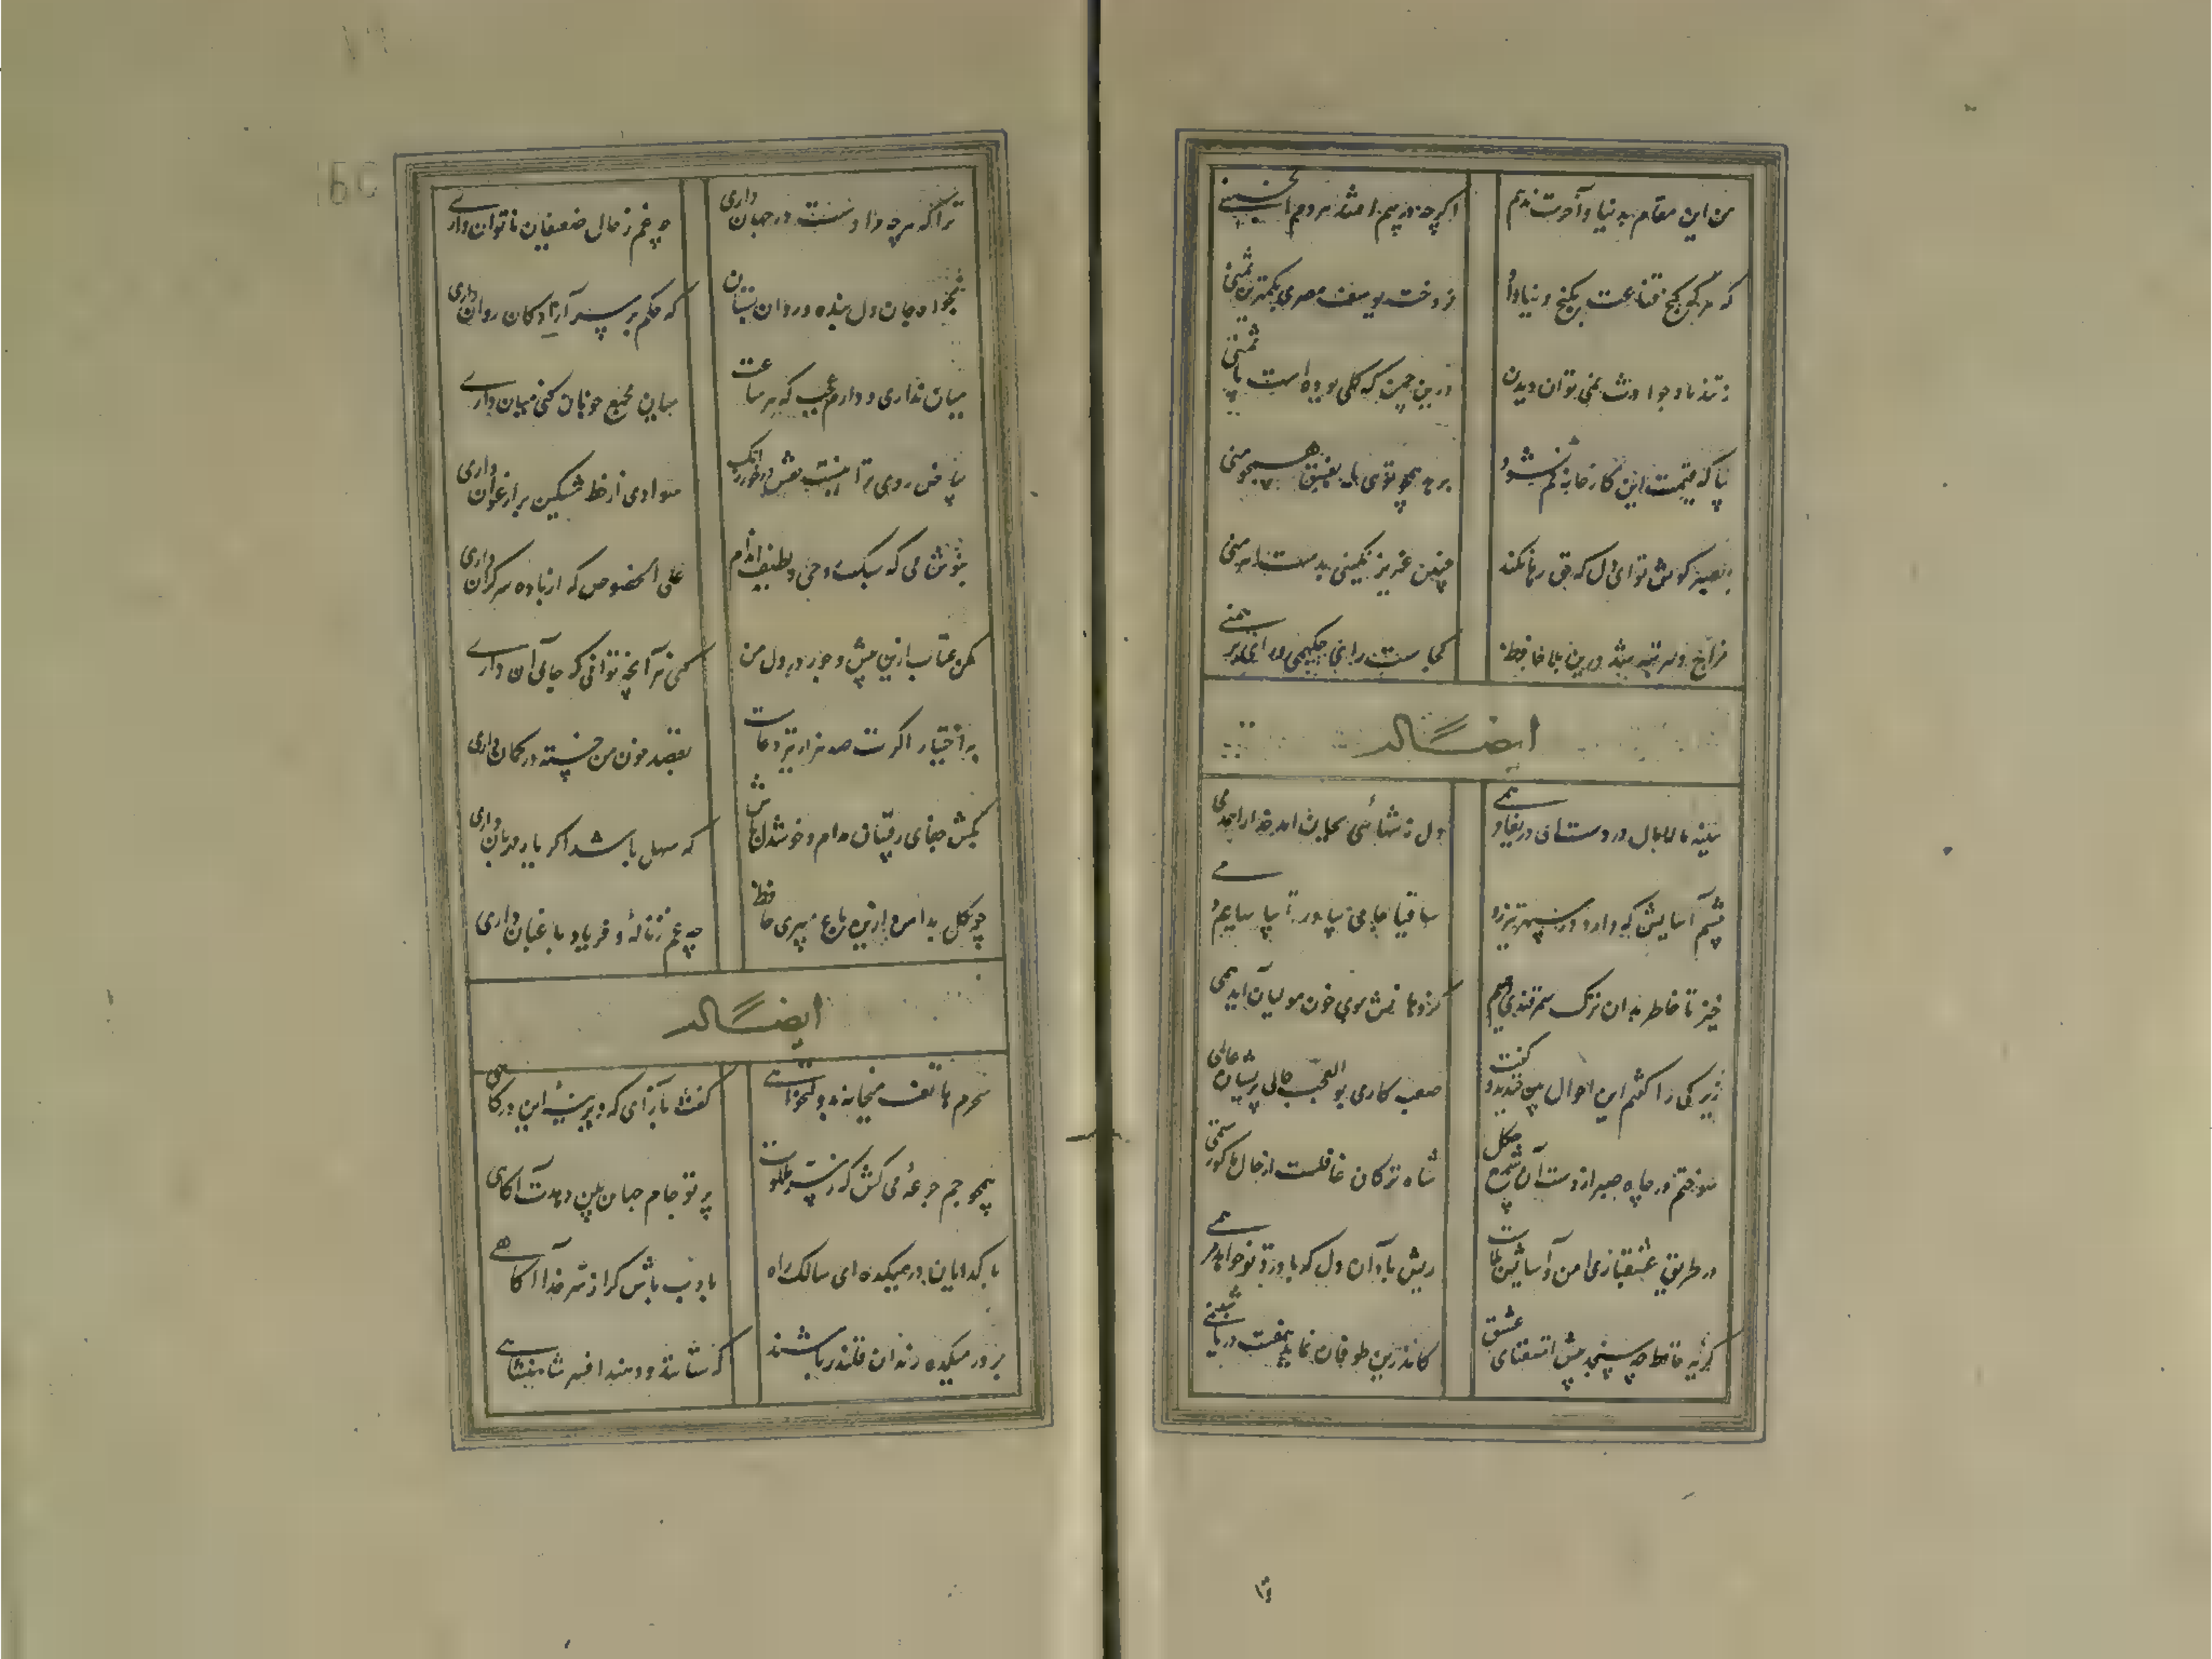 من این مقام بدنیا و آخرت ندهم
اگرچه در پیم افتند هر دم انجمنی
که هر که کنج قناعت بگنج دنیا داد
فروخت یوسف مصری بکمترین ثمنی
ز تندباد حوادث نمی توان دیدن
درین چمن که گلی بوده است یا سمنی
بیا که قیمت این کارخانه کم نشود
بزهد همچو توی یا بفسق همچو منی
بصبر کوش تو ای دل که حق رها نکند
چنین عزیز نگینی بدست اهرمنی
مزاج دهر تبه شد درین بلا حافظ
کجاست رای حکیمی و رای برهمنی
ایضاً له
سینه مالامال دردست ای دریغا مرهمی
دل ز تنهائی بجان آمد خدا را همدمی
چشم آسایش که دارد در سپهر تیزرو
ساقیا جامی بیاور تا بیاسایم دمی
خیز تا خاطر بدان ترک سمرقندی دهیم
کز نسیمش بوی خون مولیان آید همی
زیرکی را گفتم این احوال بین خندید و گفت
صعب کاری بوالعجب حالی پریشان عالمی
سوختم در چاه صبر از دست آن شمع چگل
شاه ترکان غافلست از حال ما کو رستمی
در طریق عشقبازی امن و آسایش بلاست
ریش باد آن دل که با درد تو خواهد مرهمی
گریه حافظ چه سنجد پیش استغنای عشق
کاندرین طوفان نماید هفت دریا شبنمی
ترا که هر چه مرادست در جهان داری
چه غم ز حال ضعیفان ناتوان داری
بخواه جان و دل بنده و روان بستان
که حکم بر سر آزادگان روان داری
میان نداری و دارم عجب که هر ساعت
میان مجمع خوبان کنی میان داری
بیاض روی ترا نیست نقش درخور از آنک
سوادی از خط مشکین بر ارغوان داری
بنوش می که سبک روحی و لطیف اندام
علی الخصوص که از باده سر گران داری
مکن عتاب ازین بیش و جور بر دل من
کمن هر آنچه توانی که جای آن داری
به اختیار اگرت صد هزار تیر دعاست
بقصد خون من خسته در کمان داری
بکش جفای رقیبان مدام و خوشدل باش
که سهل باشد اگر یار مهربان داری
چو گل بدامن ازین باغ میبری حافظ
چه غم ز ناله و فریاد باغبان داری
ایضاً له
سحرم هاتف میخانه بدولتخواهی
گفت باز آی که دیرینه این درگاهی
همچو جم جرعه می کش که ز سر ملکوت
پرتو جام جهان بین دهدت آگاهی
با گدایان در میکده ای سالک راه
با ادب باش گر از سر خدا آگاهی
بر در میکده رندان قلندر باشند
که ستانند و دهند افسر شاهنشاهی